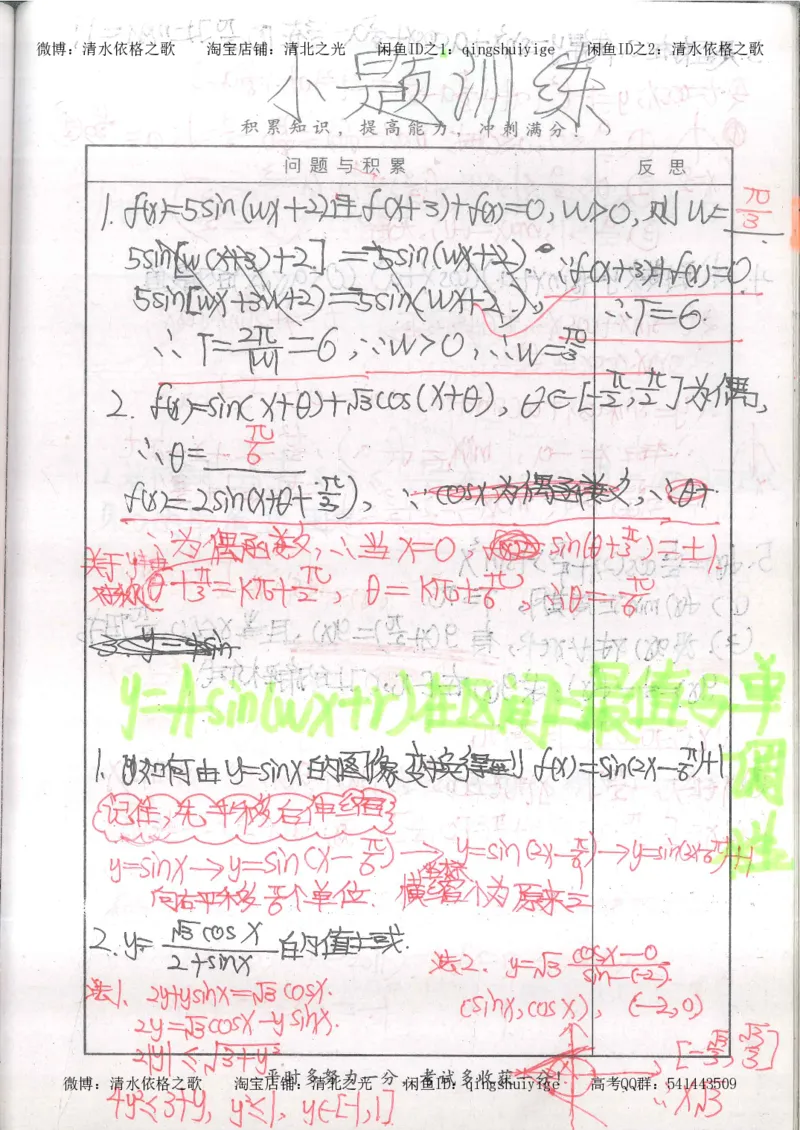 微博：清水依格之歌 淘宝店铺：清北之光 闲鱼ID之1：qingshuiyige 闲鱼ID之2：清水依格之歌
小题训练
积累知识，提高能力，冲刺满分！
问题与积累 反思
1. f(x)=5sin(wx+2)且f(x+3)+f(x)=0, w>0, 则w=π/3
5sin[w(x+3)+2] = -5sin(wx+2) ∵f(x+3)+f(x)=0
5sin[wx+3w+2)=5sin(wx+2), ∴T=6.
∴T=2π/|w|=6, ∵w>0, ∴w=π/3
2. f(x)=sin(x+θ)+√3cos(x+θ), θ∈[-π/2,π/2]为偶,
∴θ=π/6
f(x)=2sin(x+θ+π/3), ∵cosx为偶函数, ∴θ+
∵为偶函数, ∴当x=0, sin(θ+π/3)=±1,
关于y轴对称
θ+π/3=kπ+π/2, θ=kπ+π/6, ∴θ=π/6
3. y=4sin
y=Asin(wx+r)在区间上最值与单调性
1. 如何由y=sinx的图像变换得到f(x)=sin(2x-π/6)+1
记住,先平移后伸缩
y=sinx→y=sin(x-π/6)→y=sin(2x-π/6)→y=sin(2x-π/6)+1
向右平移π/6个单位. 横坐标缩小为原来1/2
2. y=√3cosx/2+sinx的值域.
法1. 2y+ysinx=√3cosx. 法2. y=√3 cosx-0/sin-(-2).
2y=√3cosx-ysinx. (sinx,cosx), (-2,0)
2|y|≤√3+y² [-√3/3,√3/3]
平时多努力一分，考试多收获一分！
微博：清水依格之歌 淘宝店铺：清北之光 闲鱼ID：qingshuiyige 高考QQ群：541443509
4y²≤3+y, y²≤1, y∈[-1,1] ∵x√3